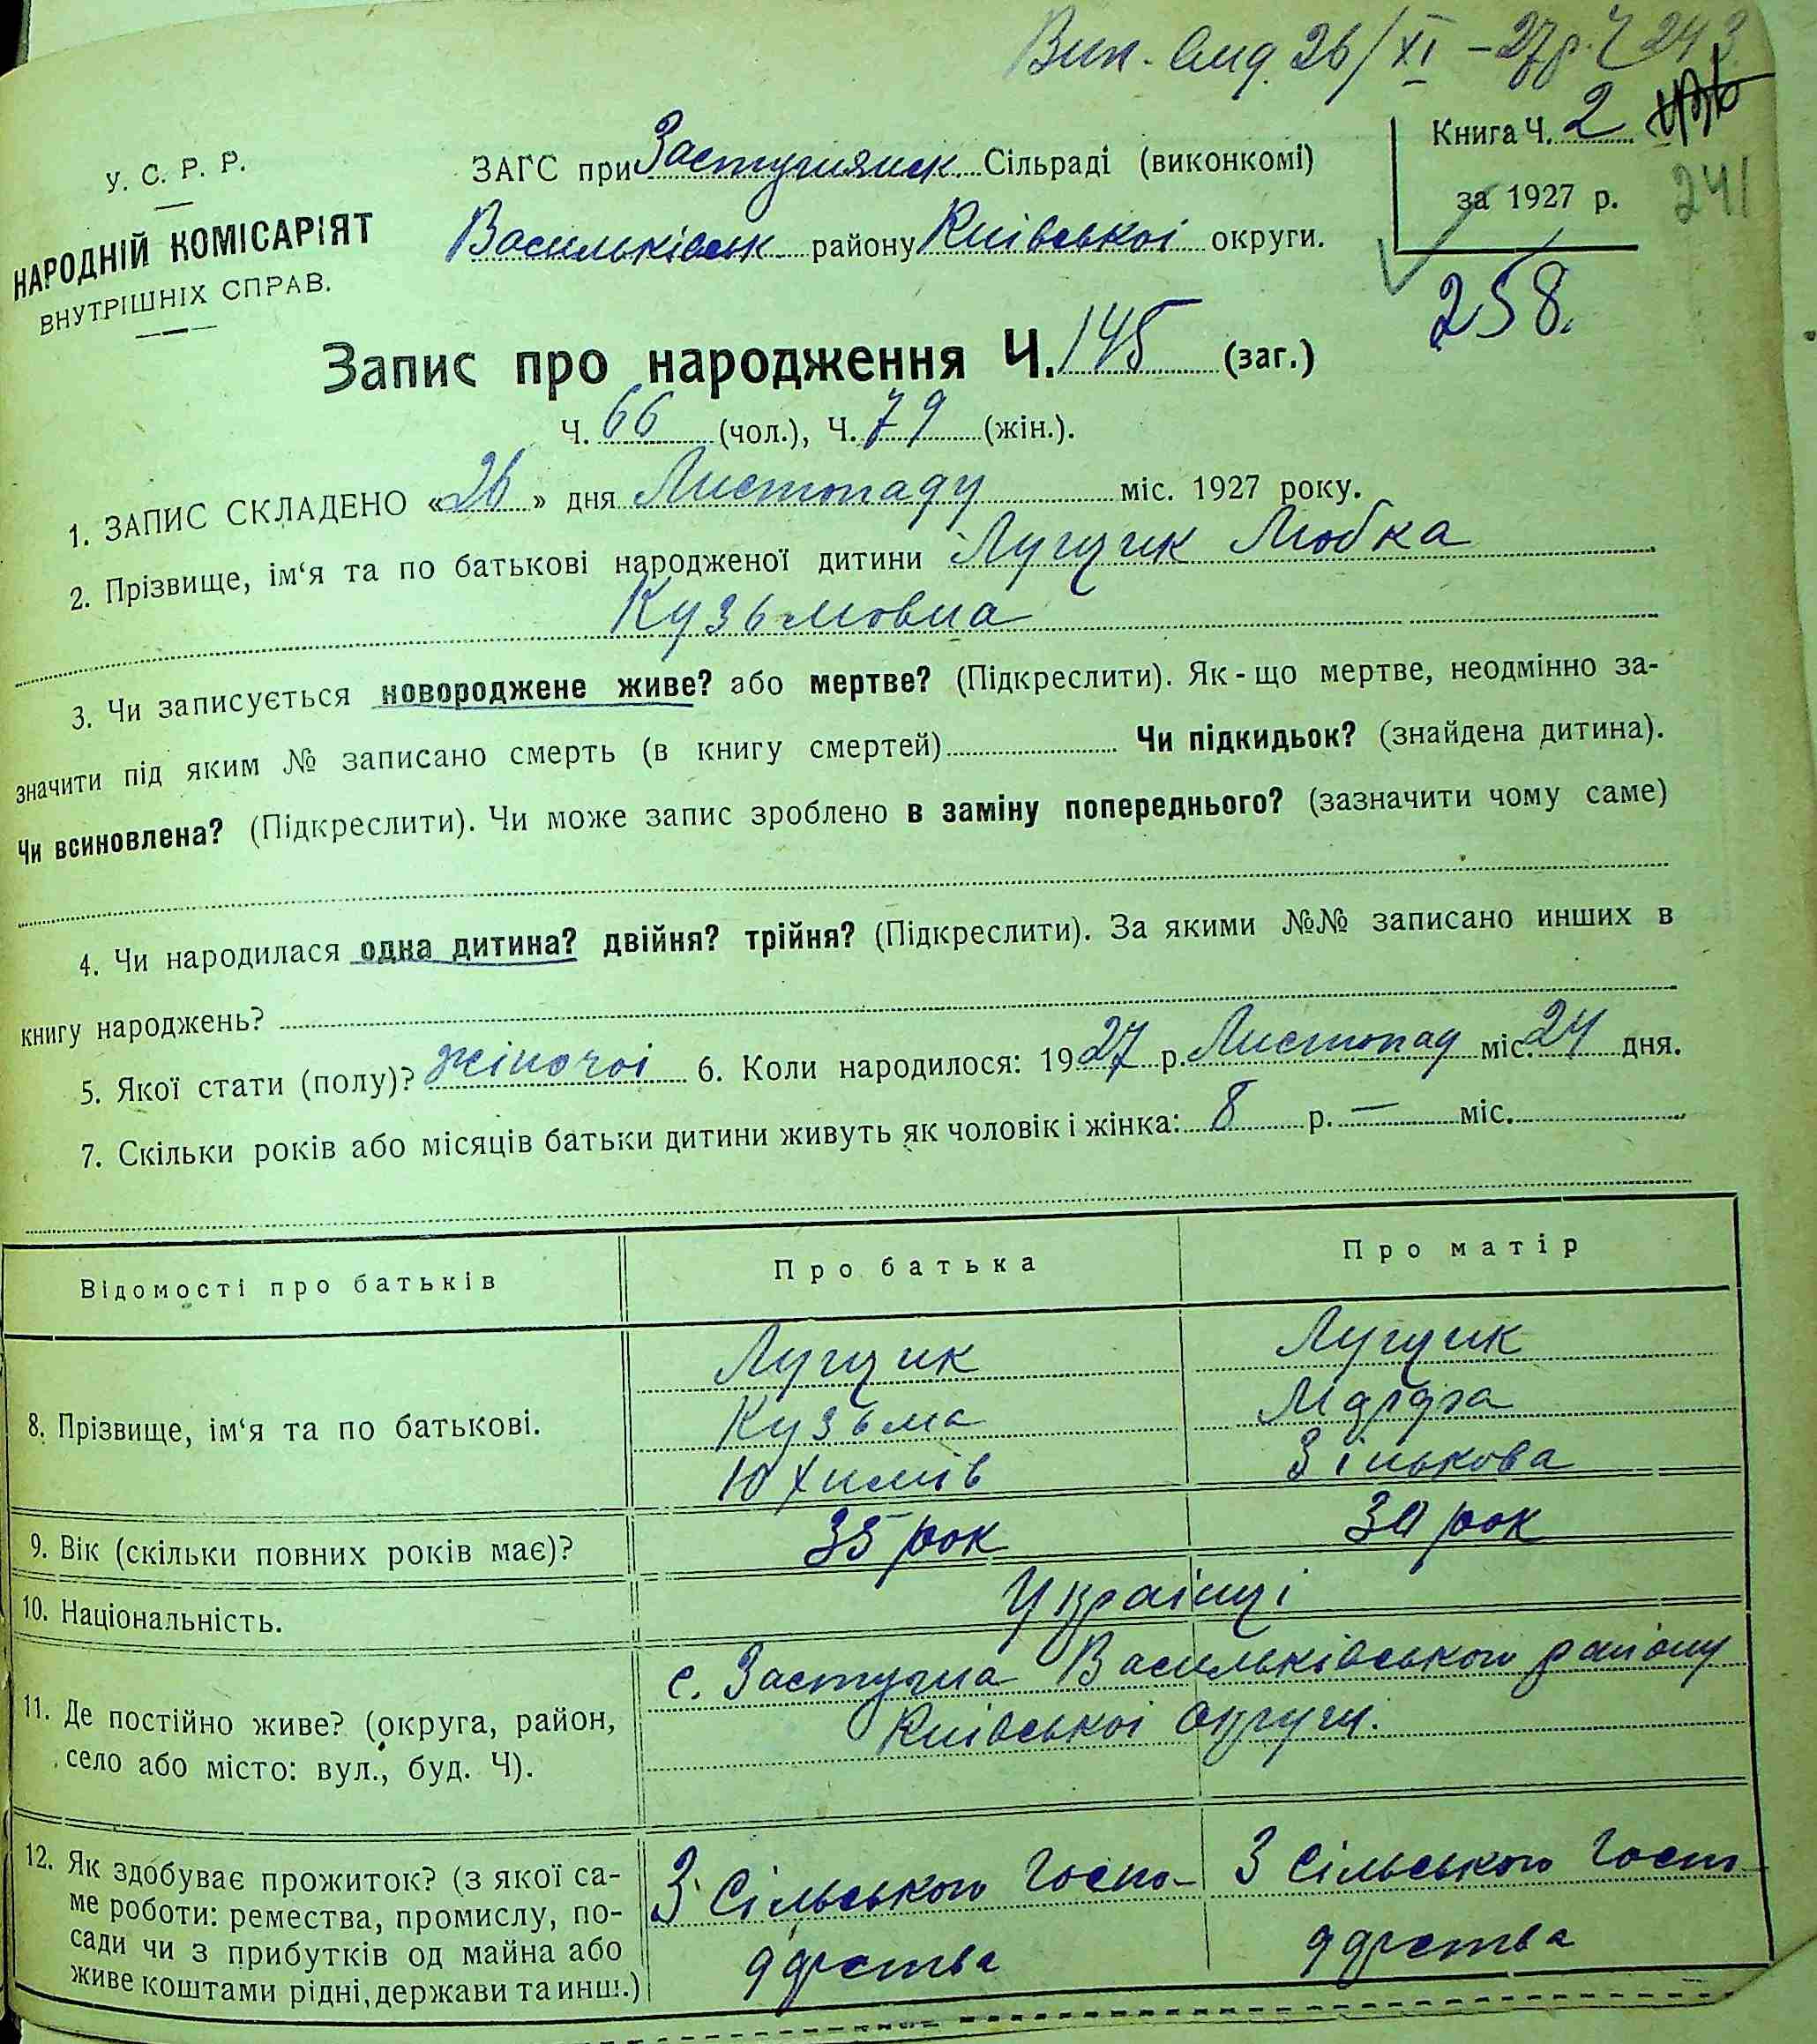 Вип. вид. 26/XI – 27 р. Ч 243
У. С. Р. Р.
НАРОДНІЙ КОМІСАРІЯТ
ВНУТРІШНІХ СПРАВ.
ЗАГС при Застугнянск. Сільраді (виконкомі)
Васильківськ. району Київської округи.
Книга Ч. 2
за 1927 р.
241
258.
Запис про народження Ч. 145 (заг.)
Ч. 66 (чол.), Ч. 79 (жін.).
1. ЗАПИС СКЛАДЕНО «26» дня Листопаду міс. 1927 року.
2. Прізвище, ім‘я та по батькові народженої дитини Лущик Любка
Кузьмовна
3. Чи записується новороджене живе? або мертве? (Підкреслити). Як-що мертве, неодмінно за-
значити під яким № записано смерть (в книгу смертей) Чи підкидьок? (знайдена дитина).
Чи всиновлена? (Підкреслити). Чи може запис зроблено в заміну попереднього? (зазначити чому саме)
4. Чи народилася одна дитина? двійня? трійня? (Підкреслити). За якими №№ записано инших в
книгу народжень?
5. Якої стати (полу)? жіночоі 6. Коли народилося: 1927 р. Листопад міс. 24 дня.
7. Скільки років або місяців батьки дитини живуть як чоловік і жінка: 8 р. — міс.
Відомості про батьків Про батька Про матір
Лущик Лущик
8. Прізвище, ім‘я та по батькові. Кузьма
Юхимів Зінькова
9. Вік (скільки повних років має)? 35 рок 30 рок
10. Національність. Українці
11. Де постійно живе? (округа, район, село або місто: вул., буд. Ч). с. Застугна Васильківського району
Київської округи.
12. Як здобуває прожиток? (з якої са- З Сільського Госпо- З Сільського Госпо-
ме роботи: ремества, промислу, по-
сади чи з прибутків од майна або дарства дарства
живе коштами рідні, держави та инш.)